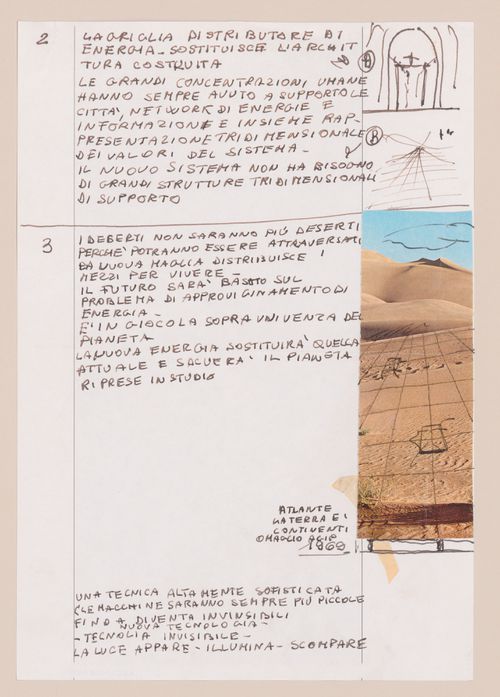 2
LA GRIGLIA DISTRIBUTORE DI
ENERGIA - SOSTITUISCE L'ARCHIT
TURA COSTRUITA
LE GRANDI CONCENTRAZIONI UMANE
HANNO SEMPRE AVUTO A SUPPORTO LE
CITTA', NETWORK DI ENERGIE E
INFORMAZIONE E INSIEME RAP-
PRESENTAZIONE TRIDIMENSIONALE
DEI VALORI DEL SISTEMA -
IL NUOVO SISTEMA NON HA BISOGNO
DI GRANDI STRUTTURE TRIDIMENSIONALI
DI SUPPORTO
B
3
I DESERTI NON SARANNO PIÙ DESERTI
PERCHE' POTRANNO ESSERE ATTRAVERSATI
LA NUOVA MAGLIA DISTRIBUISCE I
MEZZI PER VIVERE -
IL FUTURO SARA' BASATO SUL
PROBLEMA DI APPROVIGINAMENTO DI
ENERGIA -
E' IN GIOCO LA SOPRAVVIVENZA DEL
PIANETA
LA NUOVA ENERGIA SOSTITUIRA' QUELLA
ATTUALE E SALVERA' IL PIANETA
RIPRESE IN STUDIO
ATLANTE
LA TERRA E I
CONTINENTI
OMAGGIO AGIP
1969
UNA TECNICA ALTAMENTE SOFISTICATA
LE MACCHINE SARANNO SEMPRE PIÙ PICCOLE
FINO A DIVENTA INVINSIBILI
NUOVA TECNOLOGIA -
- TECNOLIA INVISIBILE -
LA LUCE APPARE - ILLUMINA - SCOMPARE